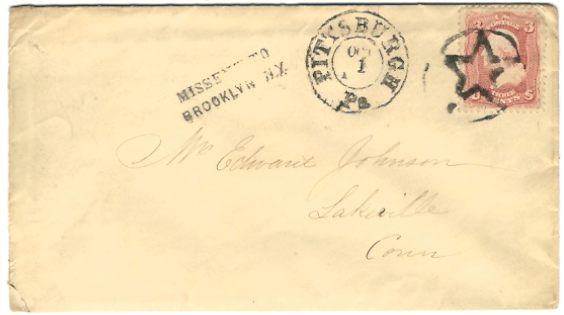 MISSENT TO
BROOKLYN N.Y.
PITTSBURGH
OCT
1
Pa
3 3
THREE
CENTS
Mr Edward Johnson
Lakeville
Conn